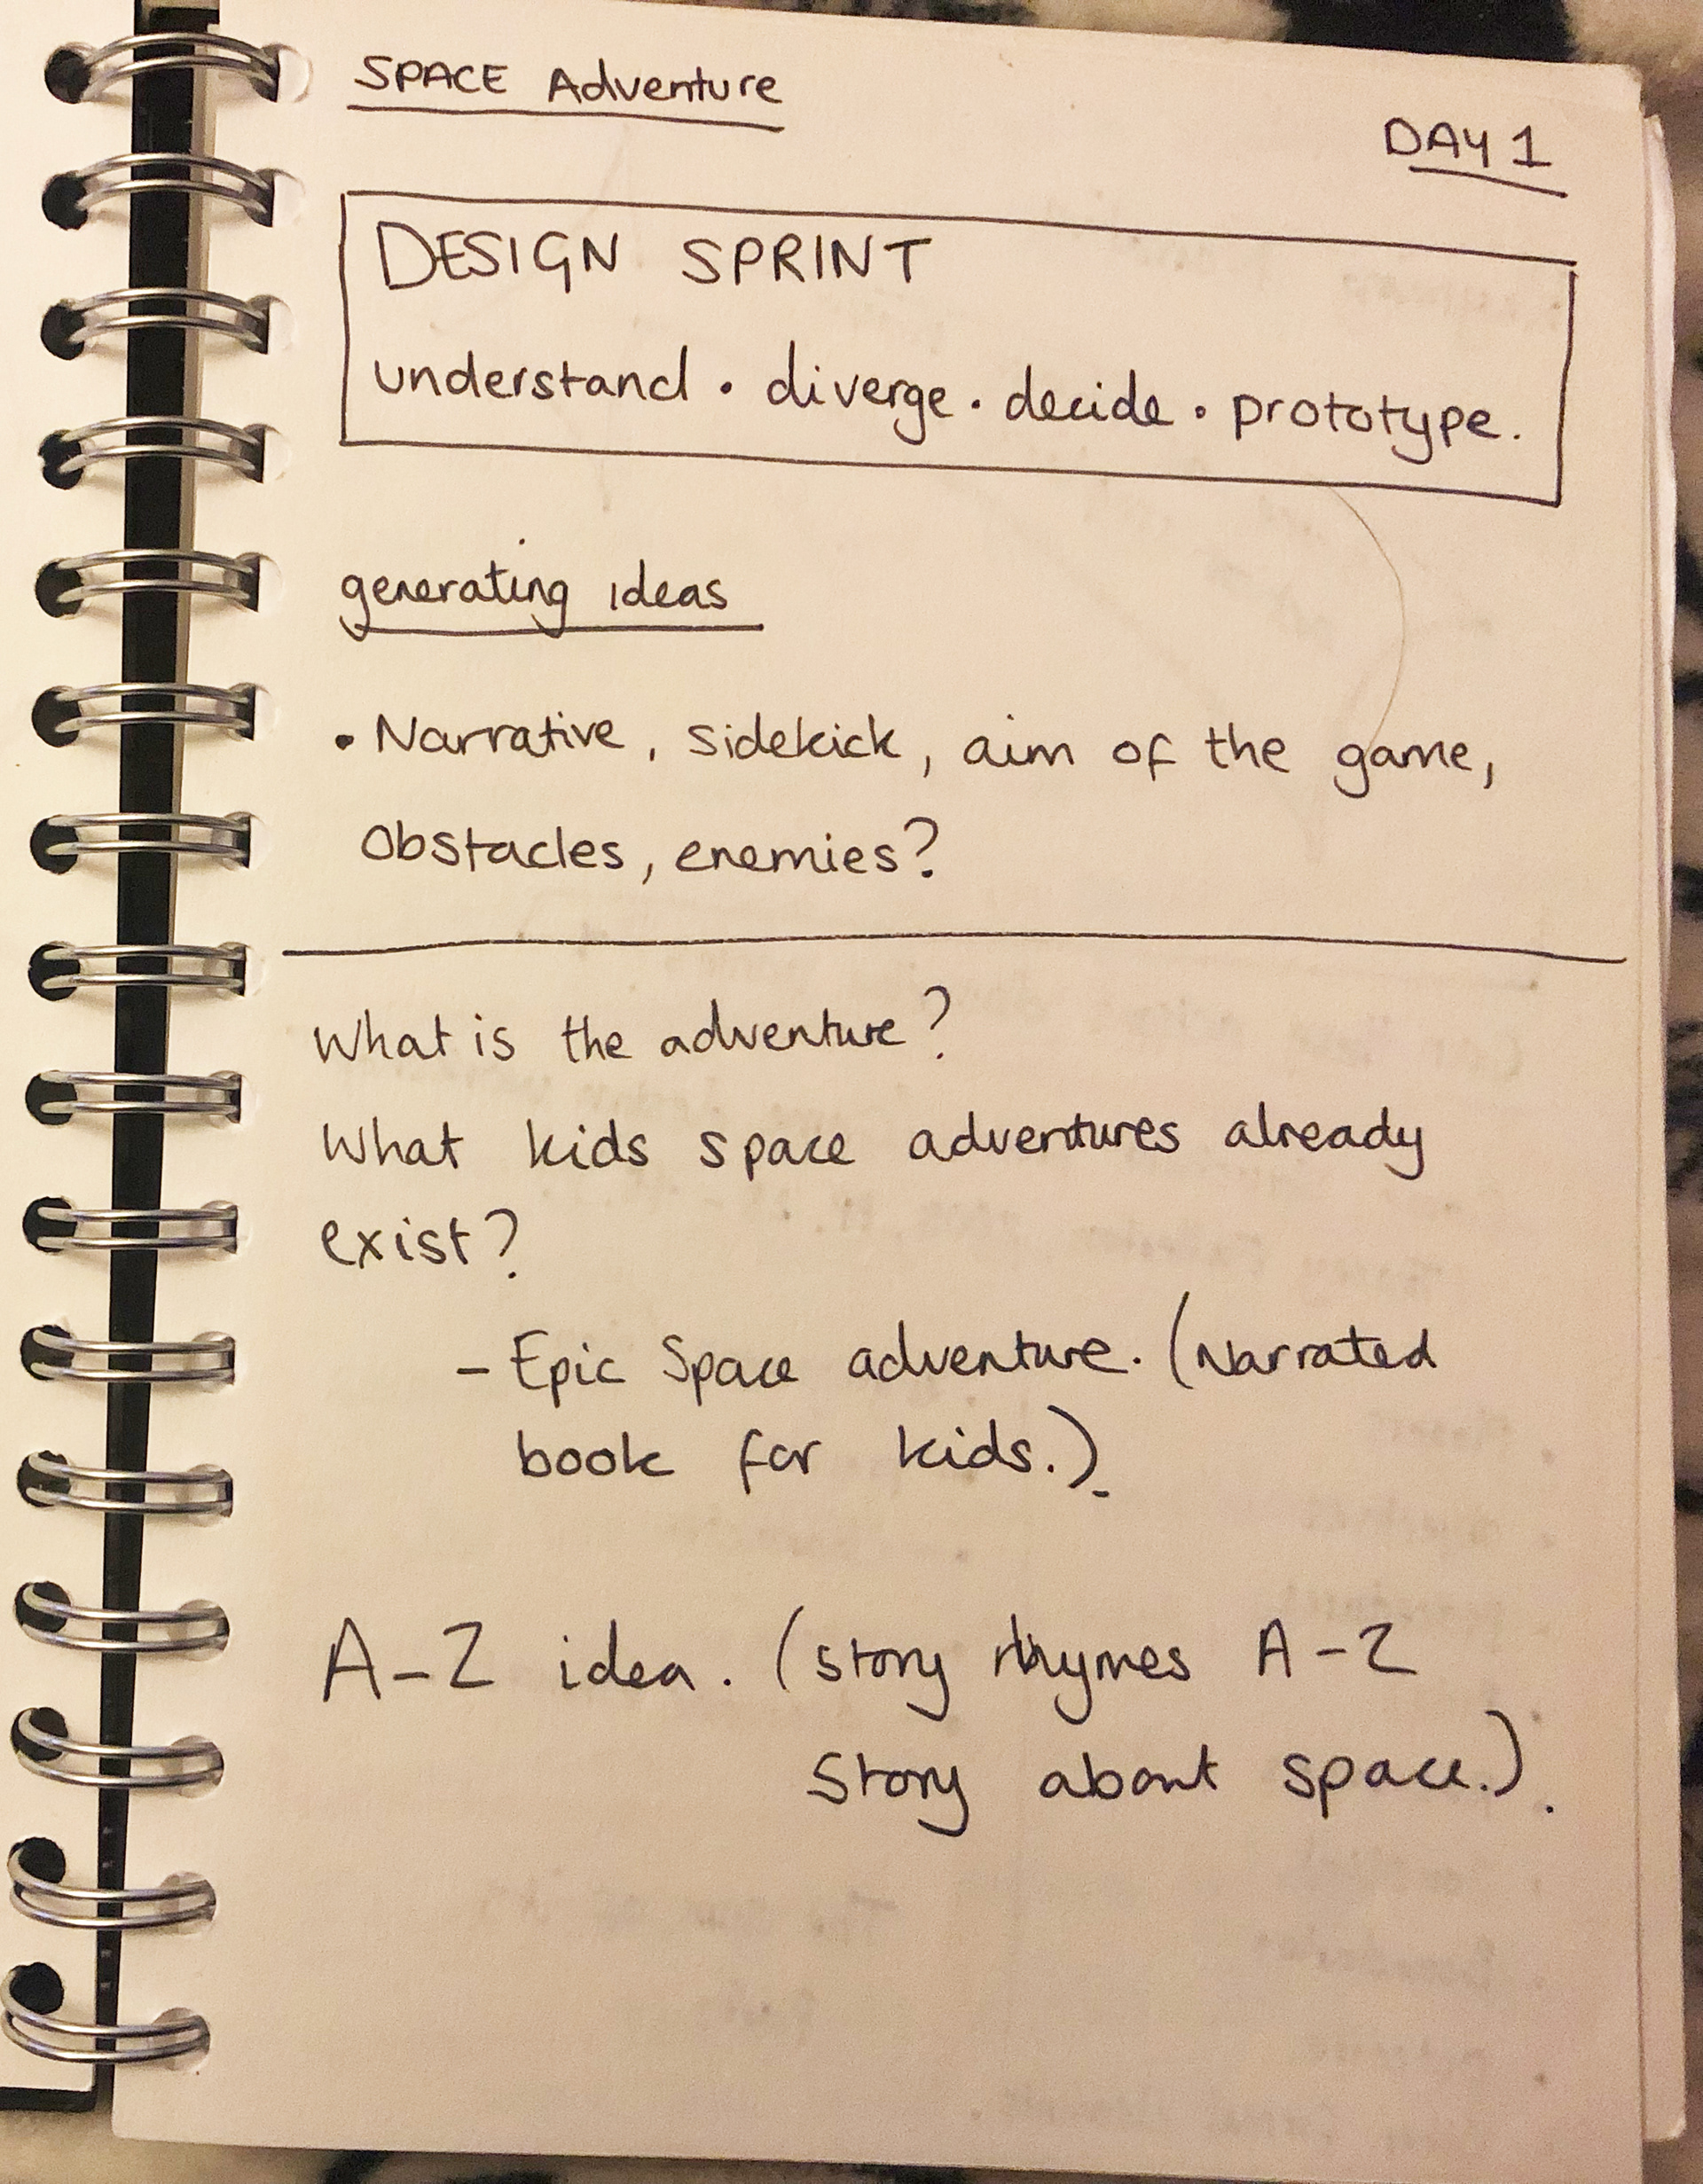 SPACE Adventure
DAY 1
DESIGN SPRINT
understand • diverge • decide • prototype.
generating ideas
• Narrative, sidekick, aim of the game,
Obstacles, enemies?
What is the adventure?
What kids space adventures already
exist?
- Epic Space adventure. (Narrated
book for kids.).
A-Z idea. (story rhymes A-Z
Story about space.).